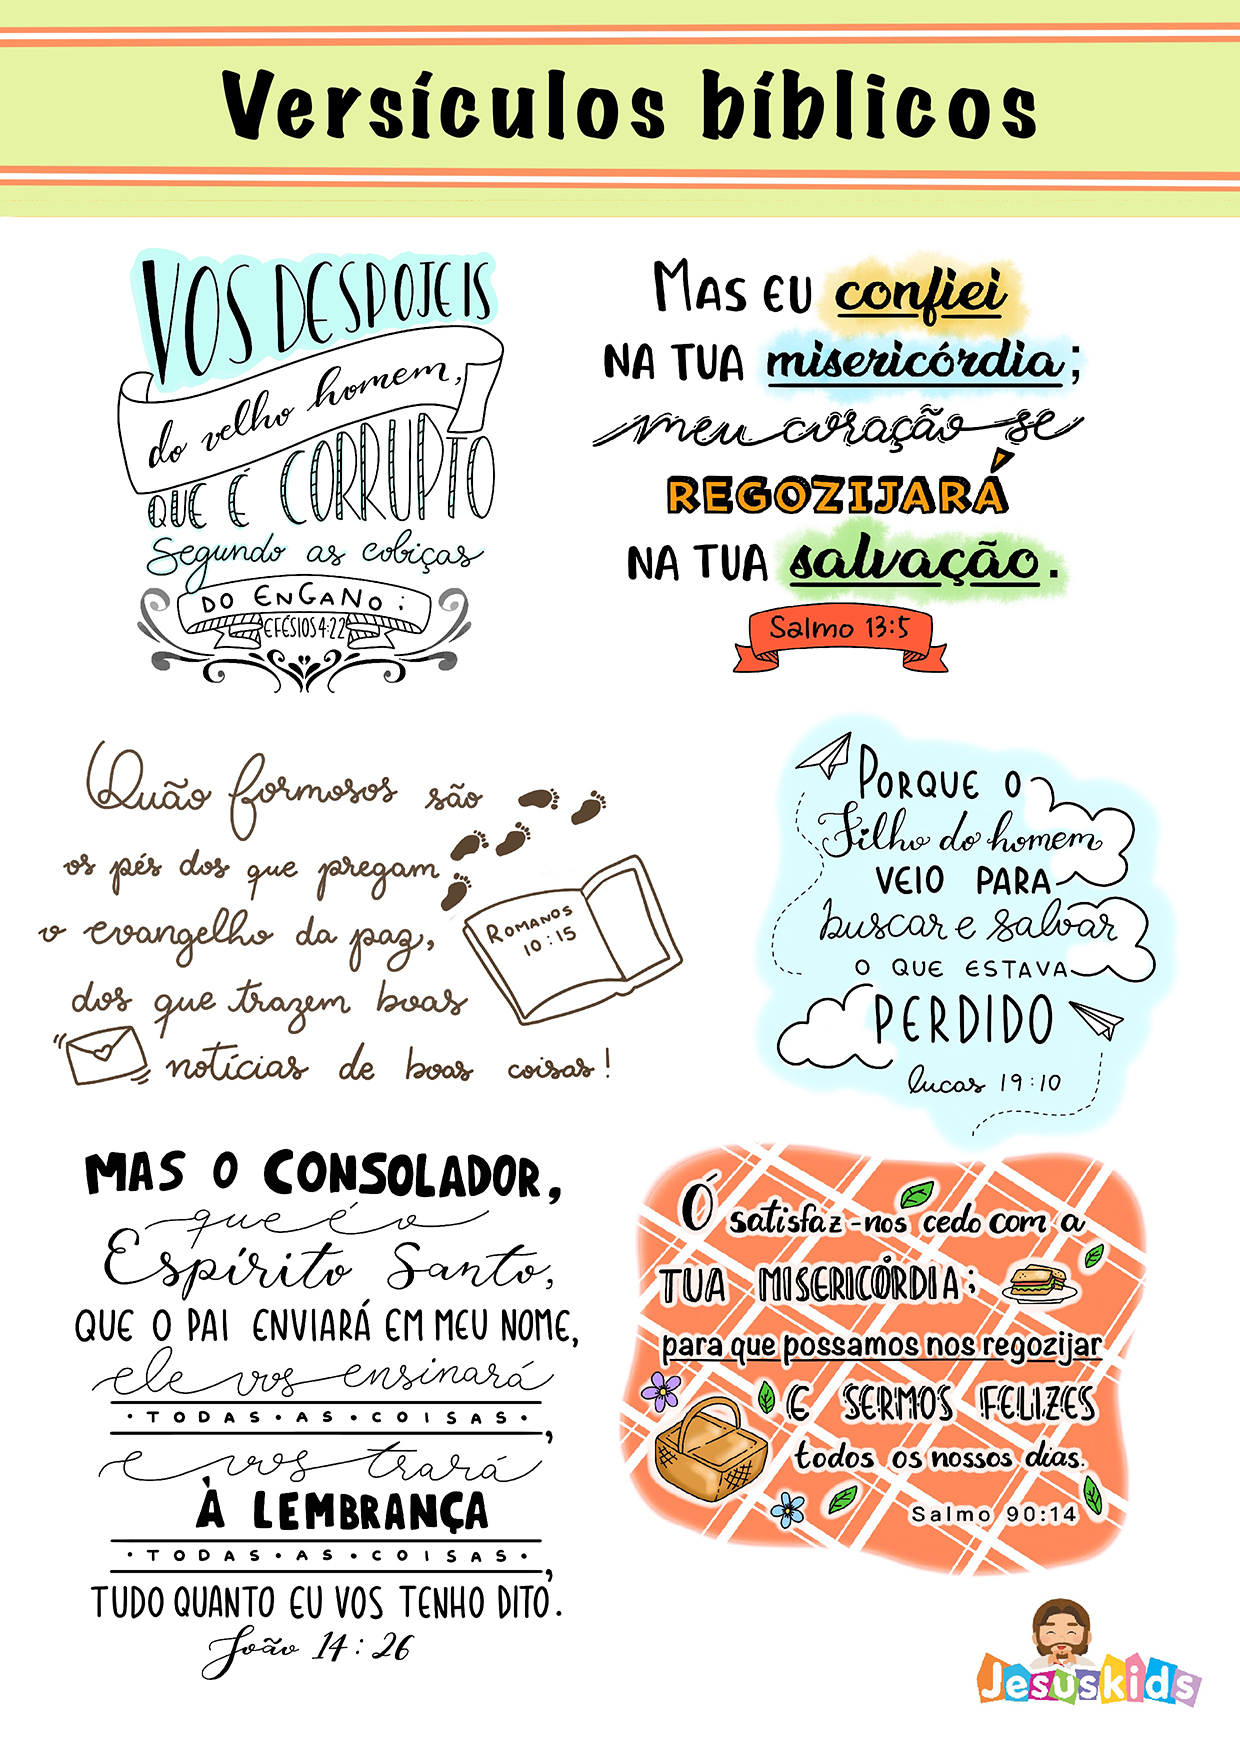 Versículos bíblicos
VOS DESPOJEIS
do velho homem,
QUE É CORRUPTO
Segundo as cobiças
DO ENGANO;
EFÉSIOS 4:22
MAS EU confiei
NA TUA misericórdia;
meu coração se
REGOZIJARÁ
NA TUA salvação.
Salmo 13:5
Quão formosos são
os pés dos que pregam
o evangelho da paz,
dos que trazem boas
notícias de boas coisas!
ROMANOS
10:15
PORQUE O
Filho do homem
VEIO PARA
buscar e salvar
O QUE ESTAVA
PERDIDO
lucas 19:10
MAS O CONSOLADOR,
que é o
Espírito Santo,
QUE O PAI ENVIARÁ EM MEU NOME,
ele vos ensinará
•TODAS•AS•COISAS•,
e vos trará
À LEMBRANÇA
•TODAS•AS•COISAS•,
TUDO QUANTO EU VOS TENHO DITO.
João 14:26
Ó satisfaz-nos cedo com a
TUA MISERICÓRDIA;
para que possamos nos regozijar
E SERMOS FELIZES
todos os nossos dias.
Salmo 90:14
Jesuskids